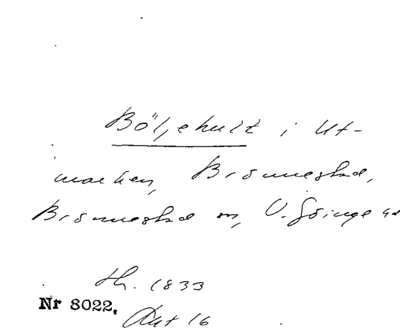 Böljehult i Ut-
marken, Brönnestad,
Brönnestad sn, V. Göinge hd
th. 1833
Nr 8022,
Akt 16